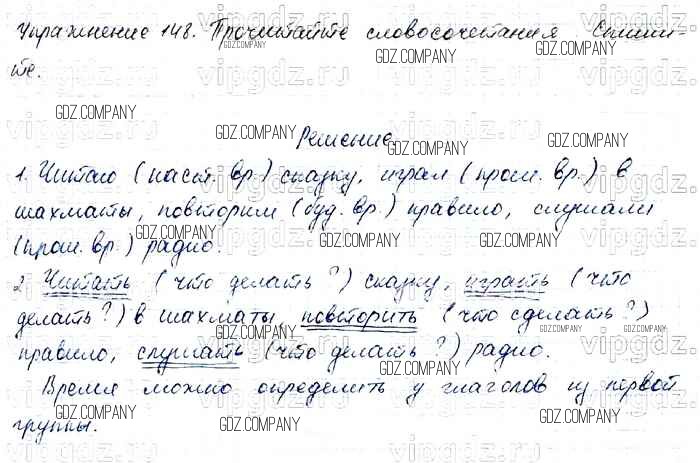 Упражнение 148. Прочитайте словосочетания. Спиши-
те.
Решение
1. Читаю (наст. вр.) сказку, играл (прош. вр.) в
шахматы, повторим (буд. вр.) правило, слушали
(прош. вр.) радио.
2. Читать (что делать?) сказку, играть (что
делать?) в шахматы, повторить (что сделать?)
правило, слушать (что делать?) радио.
Время можно определить у глаголов из первой
группы.